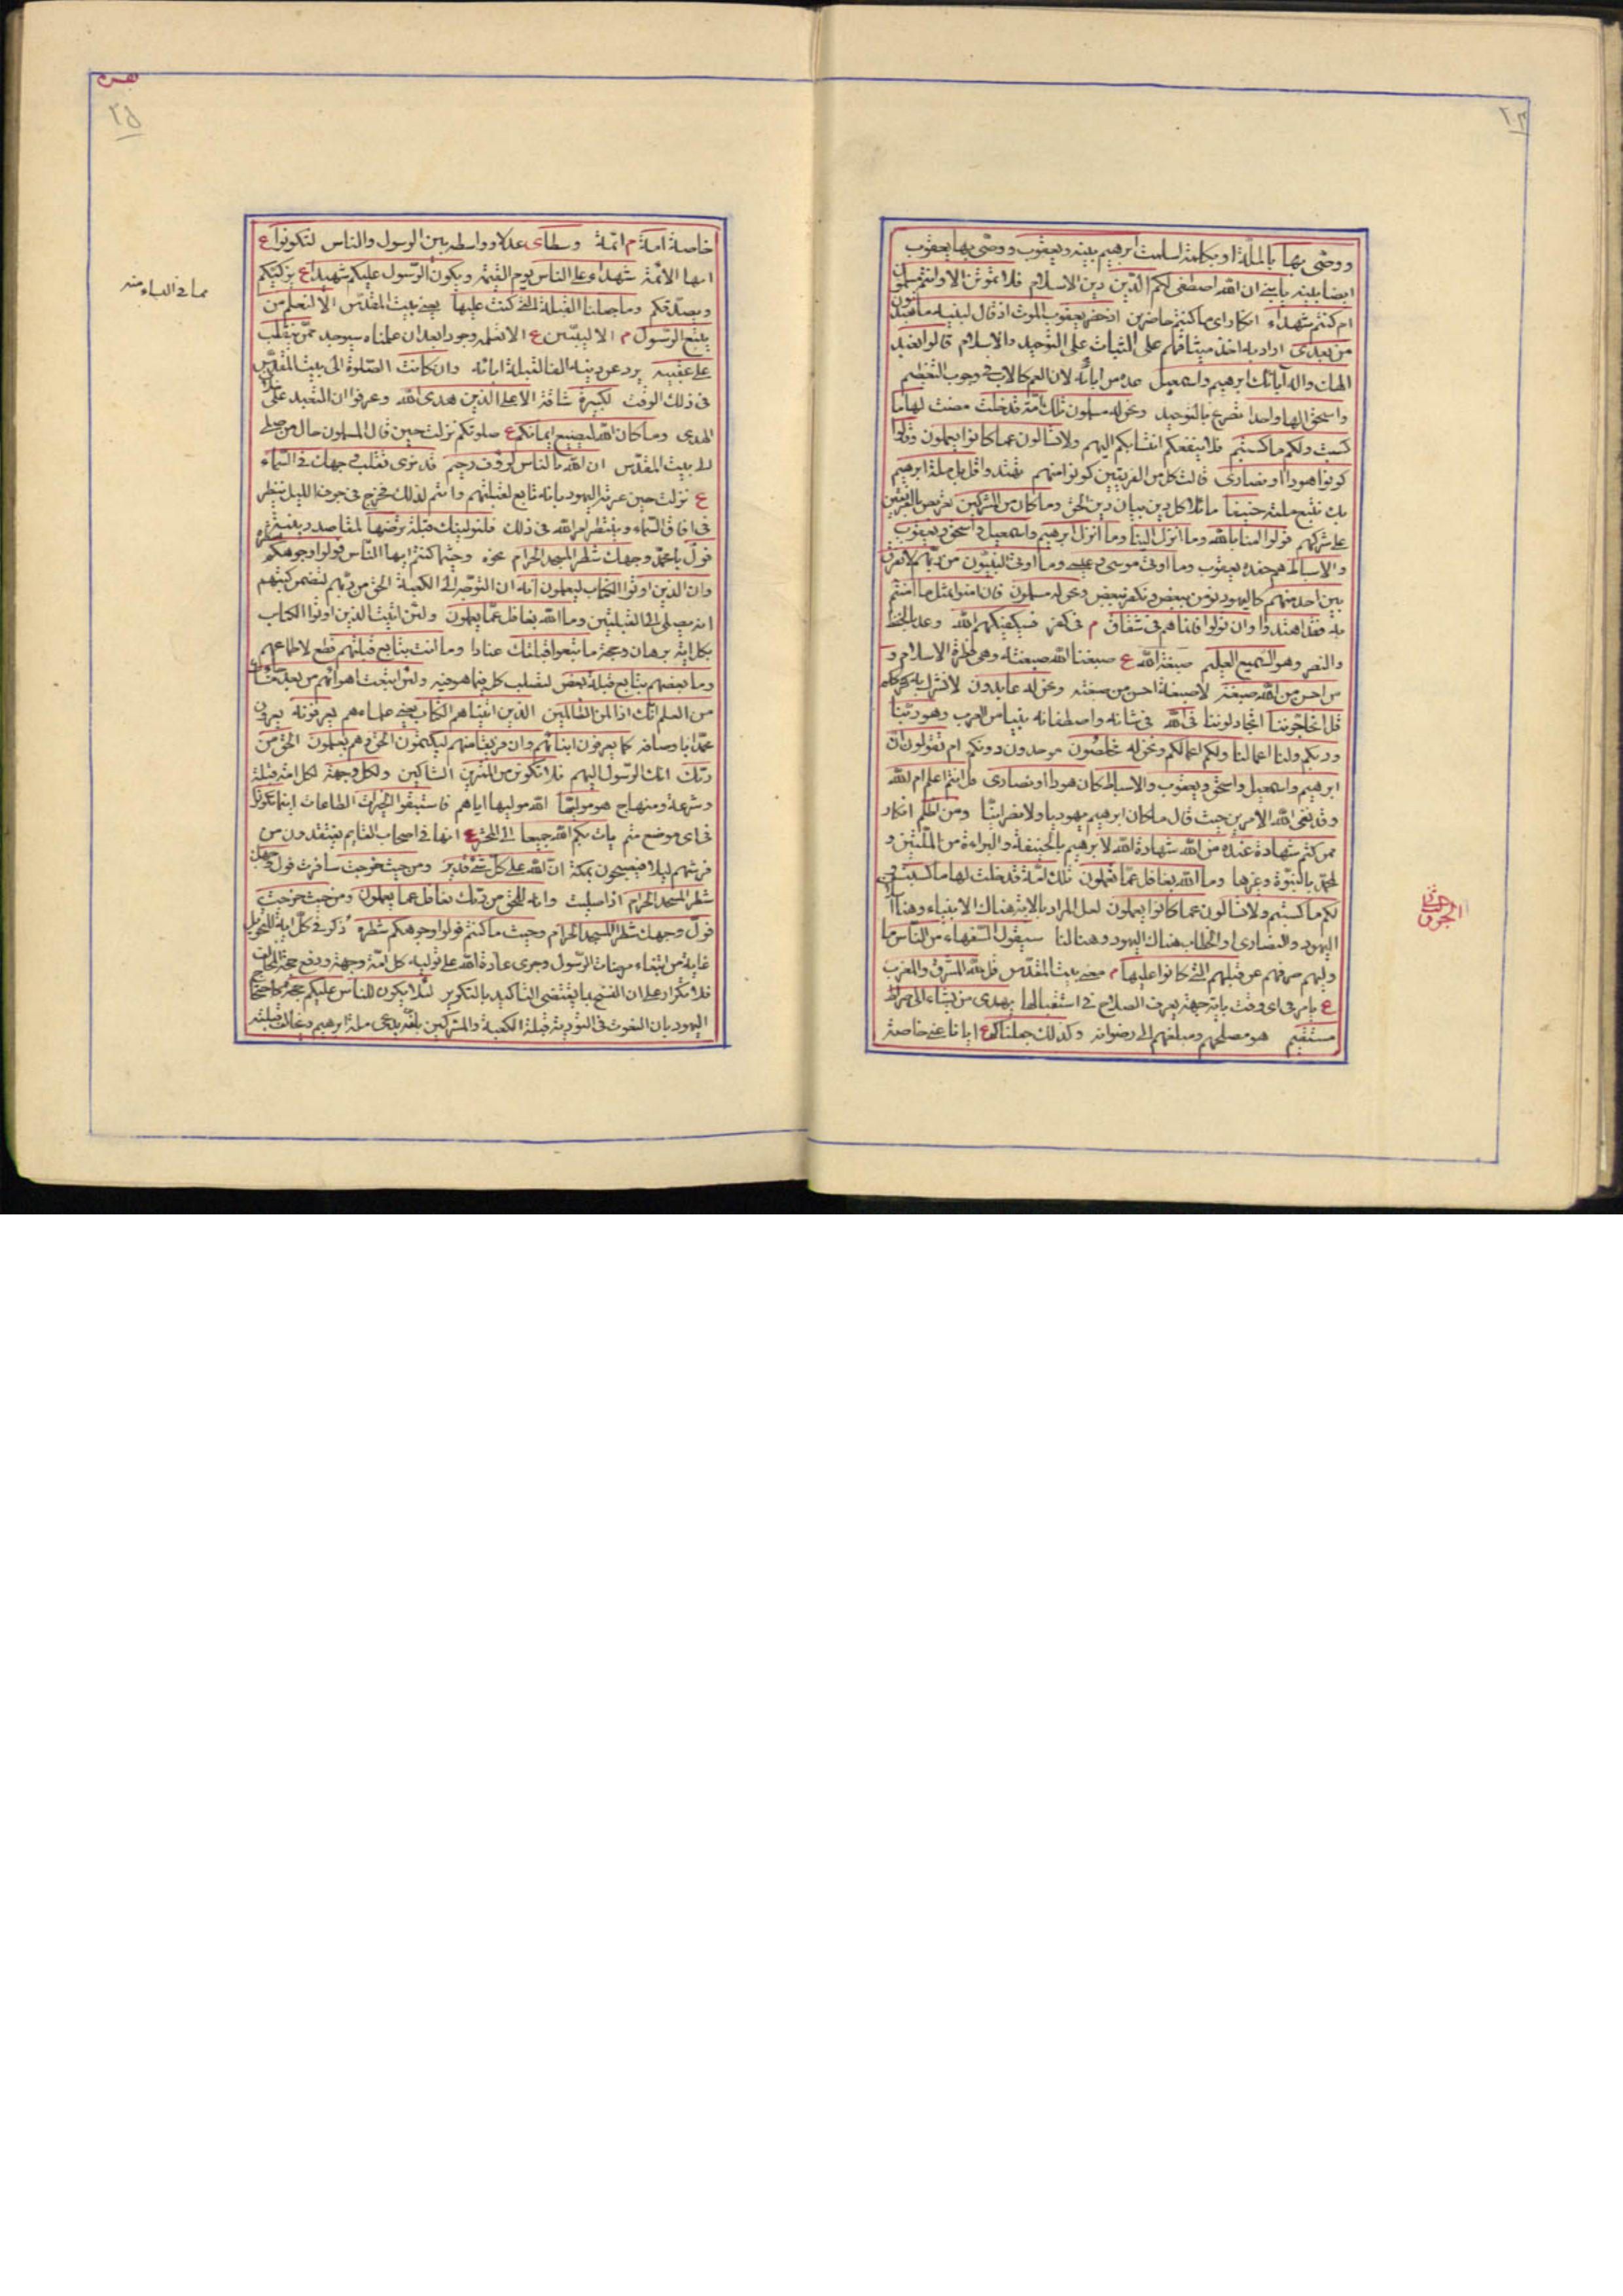 ووصّى بها بالملّة او بكلمة اسلمت ابرهيم بنيه ويعقوب ووصّى بها يعقوب
ايضا بنيه يا بنيّ ان الله اصطفى لكم الدّين دين الاسلام فلا تموتنّ الا وانتم مسلمون
ام كنتم شهداء انكار اى ما كنتم حاضرين اذ حضر يعقوب الموت اذ قال لبنيه ما تعبدون
من بعدى اراد به اخذ ميثاقهم على الثبات على التوحيد والاسلام قالوا نعبد
الهك واله آبائك ابرهيم واسمعيل عده من ابائه لان العم كالاب فى وجوب التعظيم
واسحق الها واحدا تصريح بالتوحيد ونحن له مسلمون تلك امّة قد خلت مضت لها ما
كسبت ولكم ما كسبتم فلا ينفعكم انتسابكم اليهم ولا تسألون عما كانوا يعملون وقالوا
كونوا هودا او نصارى قالت كل من الفريقين كونوا منهم تهتدوا قل بل ملة ابرهيم
بل نتبع ملته حنيفا مائلا كل دين الى دين الحق وما كان من المشركين تعريض بالفريقين
على شركهم قولوا امنا بالله وما انزل الينا وما انزل الى ابرهيم واسمعيل واسحق ويعقوب
والاسباط هم حفدة يعقوب وما اوتى موسى وعيسى وما اوتى النبيّون من ربّهم لا نفرق
بين احد منهم كاليهود نؤمن ببعض ونكفر ببعض ونحن له مسلمون فان امنوا بمثل ما امنتم
به فقد اهتدوا وان تولوا فانما هم فى شقاق م فى كفر فسيكفيكهم الله وعد بالحفظ
والنصر وهو السّميع العليم صبغة الله ع صبغنا الله صبغته وهى فطرة الاسلام و
من احسن من الله صبغة لا صبغة احسن من صبغته ونحن له عابدون لا نشرك به كشرككم
قل اتحاجّوننا اتجادلوننا فى الله فى شانه واصطفائه نبيا من العرب وهو ربّنا
وربكم ولنا اعمالنا ولكم اعمالكم ونحن له مخلصون موحدون دونكم ام تقولون انّ
ابرهيم واسمعيل واسحق ويعقوب والاسباط كان هودا او نصارى قل انتم اعلم ام الله
وقد نفى الله الامرين حيث قال ما كان ابرهيم يهوديا ولا نصرانيّا ومن اظلم انكار
ممن كتم شهادة عنده من الله شهادة الله لابرهيم بالحنيفة والبراءة من الملّتين و
لمحمد بالنبوّة وغيرها وما الله بغافل عمّا تعملون تلك امّة قد خلت لها ما كسبت و
لكم ما كسبتم ولا تسألون عما كانوا يعملون لعل المراد بالامة هناك الانبياء وهنا
اليهود والنصارى او الخطاب هناك لليهود وهنا لنا سيقول السّفهاء من النّاس ما
وليهم صرفهم عن قبلتهم التى كانوا عليها م يعنى بيت المقدّس قل لله المشرق والمغرب
ع يامر فى اى وقت باية جهة يعرف الصلاح فى استقبالها يهدى من يشاء الى صراط
مستقيم هو مصلحهم ومبلغهم الى رضوانه وكذلك جعلناكم ع ايانا عنى خاصة
خاصة امة م ائمّة وسطا ى عدلا وواسطة بين الرسول والناس لتكونوا ع
ايها الائمّة شهداء على الناس يوم القيمة ويكون الرّسول عليكم شهيدا ع يزكيكم
ويصدّقكم وما جعلنا القبلة التى كنت عليها يعنى بيت المقدّس الا لنعلم من
يتبع الرّسول م الا ليتبيّن ع الا لنعلمه وجودا بعد ان علمناه سيوجد ممّن ينقلب
على عقبيه يرد عن دينه الفا لقبلة ابائه وان كانت الصّلوة الى بيت المقدّس
فى ذلك الوقت لكبيرة شاقة الا على الذين هدى الله وعرفوا ان التعبد على خلاف
الهدى وما كان الله ليضيع ايمانكم ع صلوتكم نزلت حين قال المسلمون حال من صلى
الى بيت المقدّس ان الله بالناس لرؤف رحيم قد نرى تقلب وجهك فى السّماء
ع نزلت حين عيرته اليهود بانه تابع لقبلتهم واغتم لذلك فخرج فى جوف الليل ينظر
فى افاق السّماء وينتظر امر الله فى ذلك فلنولينك قبلة ترضها لمقاصد دينية
فولّ يا محمد وجهك شطر المسجد الحرام نحوه وحيثما كنتم ايها النّاس فولوا وجوهكم شطره
وان الذين اوتوا الكتاب ليعلمون انه ان التوجّه الى الكعبة الحق من ربّهم لتضمن كتبهم
انه يصلى الى القبلتين وما الله بغافل عمّا يعملون ولئن اتيت الذين اوتوا الكتاب
بكل اية برهان وحجة ما تبعوا قبلتك عنادا وما انت بتابع قبلتهم قطع لاطماعهم
وما بعضهم بتابع قبلة بعض لتصلب كل فيما هو فيه ولئن اتبعت اهوائهم من بعد ما جاءك
من العلم انّك اذا لمن الظالمين الذين اتيناهم الكتاب يعنى علماءهم يعرفونه يعرفون
محمّدا باوصافه كما يعرفون ابنائهم وان فريقا منهم ليكتمون الحق وهم يعلمون الحق من
ربّك انك الرّسول اليهم فلا تكونن من الممترين الشاكين ولكل وجهة لكل امة قبلة
وشرعة ومنهاج هو مولّيها الله موليها اياهم فاستبقوا الخيرات الطاعات اينما تكونوا
فى اى موضع متم يات بكم الله جميعا الى المحشر ع انها فى اصحاب القايم يفتقدون من
فرشهم ليلا فيصبحون بمكة انّ الله على كلّ شىء قدير ومن حيث خرجت سافرت فولّ وجهك
شطر المسجد الحرام اذا صليت وانه للحق من ربّك وما الله بغافل عما يعملون ومن حيث خرجت
فولّ وجهك شطر المسجد الحرام وحيث ما كنتم فولوا وجوهكم شطره ذكر فى كلّ اية للتحويل
غاية من ابتغاء مرضات الرّسول وجرى عادة الله على تولية كل امّة وجهة ودفع حجة المخالف
فلا تكرار على ان النسخ مما يقتضى التاكيد بالتكرير لئلا يكون للناس عليكم حجة
اليهود بان المنعوت فى التورية قبلة الكعبة والمشركين بانّه يدعى ملة ابرهيم ويخالف قبلته